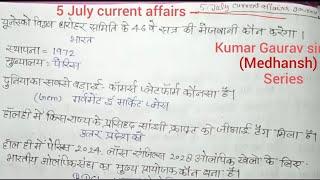 5 July current affairs –
5 July current affairs
यूनेस्को विश्व धरोहर समिति के 46 वे सत्र की मेजबानी कौन करेगा।
भारत
Kumar Gaurav sir
(Medhansh)
Series
स्थापना = 1972
मुख्यालय = पेरिस
दुनिया का सबसे बड़ा ई- कॉमर्स प्लेटफॉर्म कौनसा है।
(Gem) गवर्नमेंट ई मार्केट प्लेस
हाल ही में किस राज्य के प्रसिद्ध सांझी क्राफ्ट को जीआई टैग मिला है।
उत्तर प्रदेश को
हाल ही में पेरिस 2024, लॉस एंजिल्स 2028 ओलंपिक खेलो के लिए
भारतीय ओलंपिक संघ का मुख्य प्रायोजक कौन बना है।